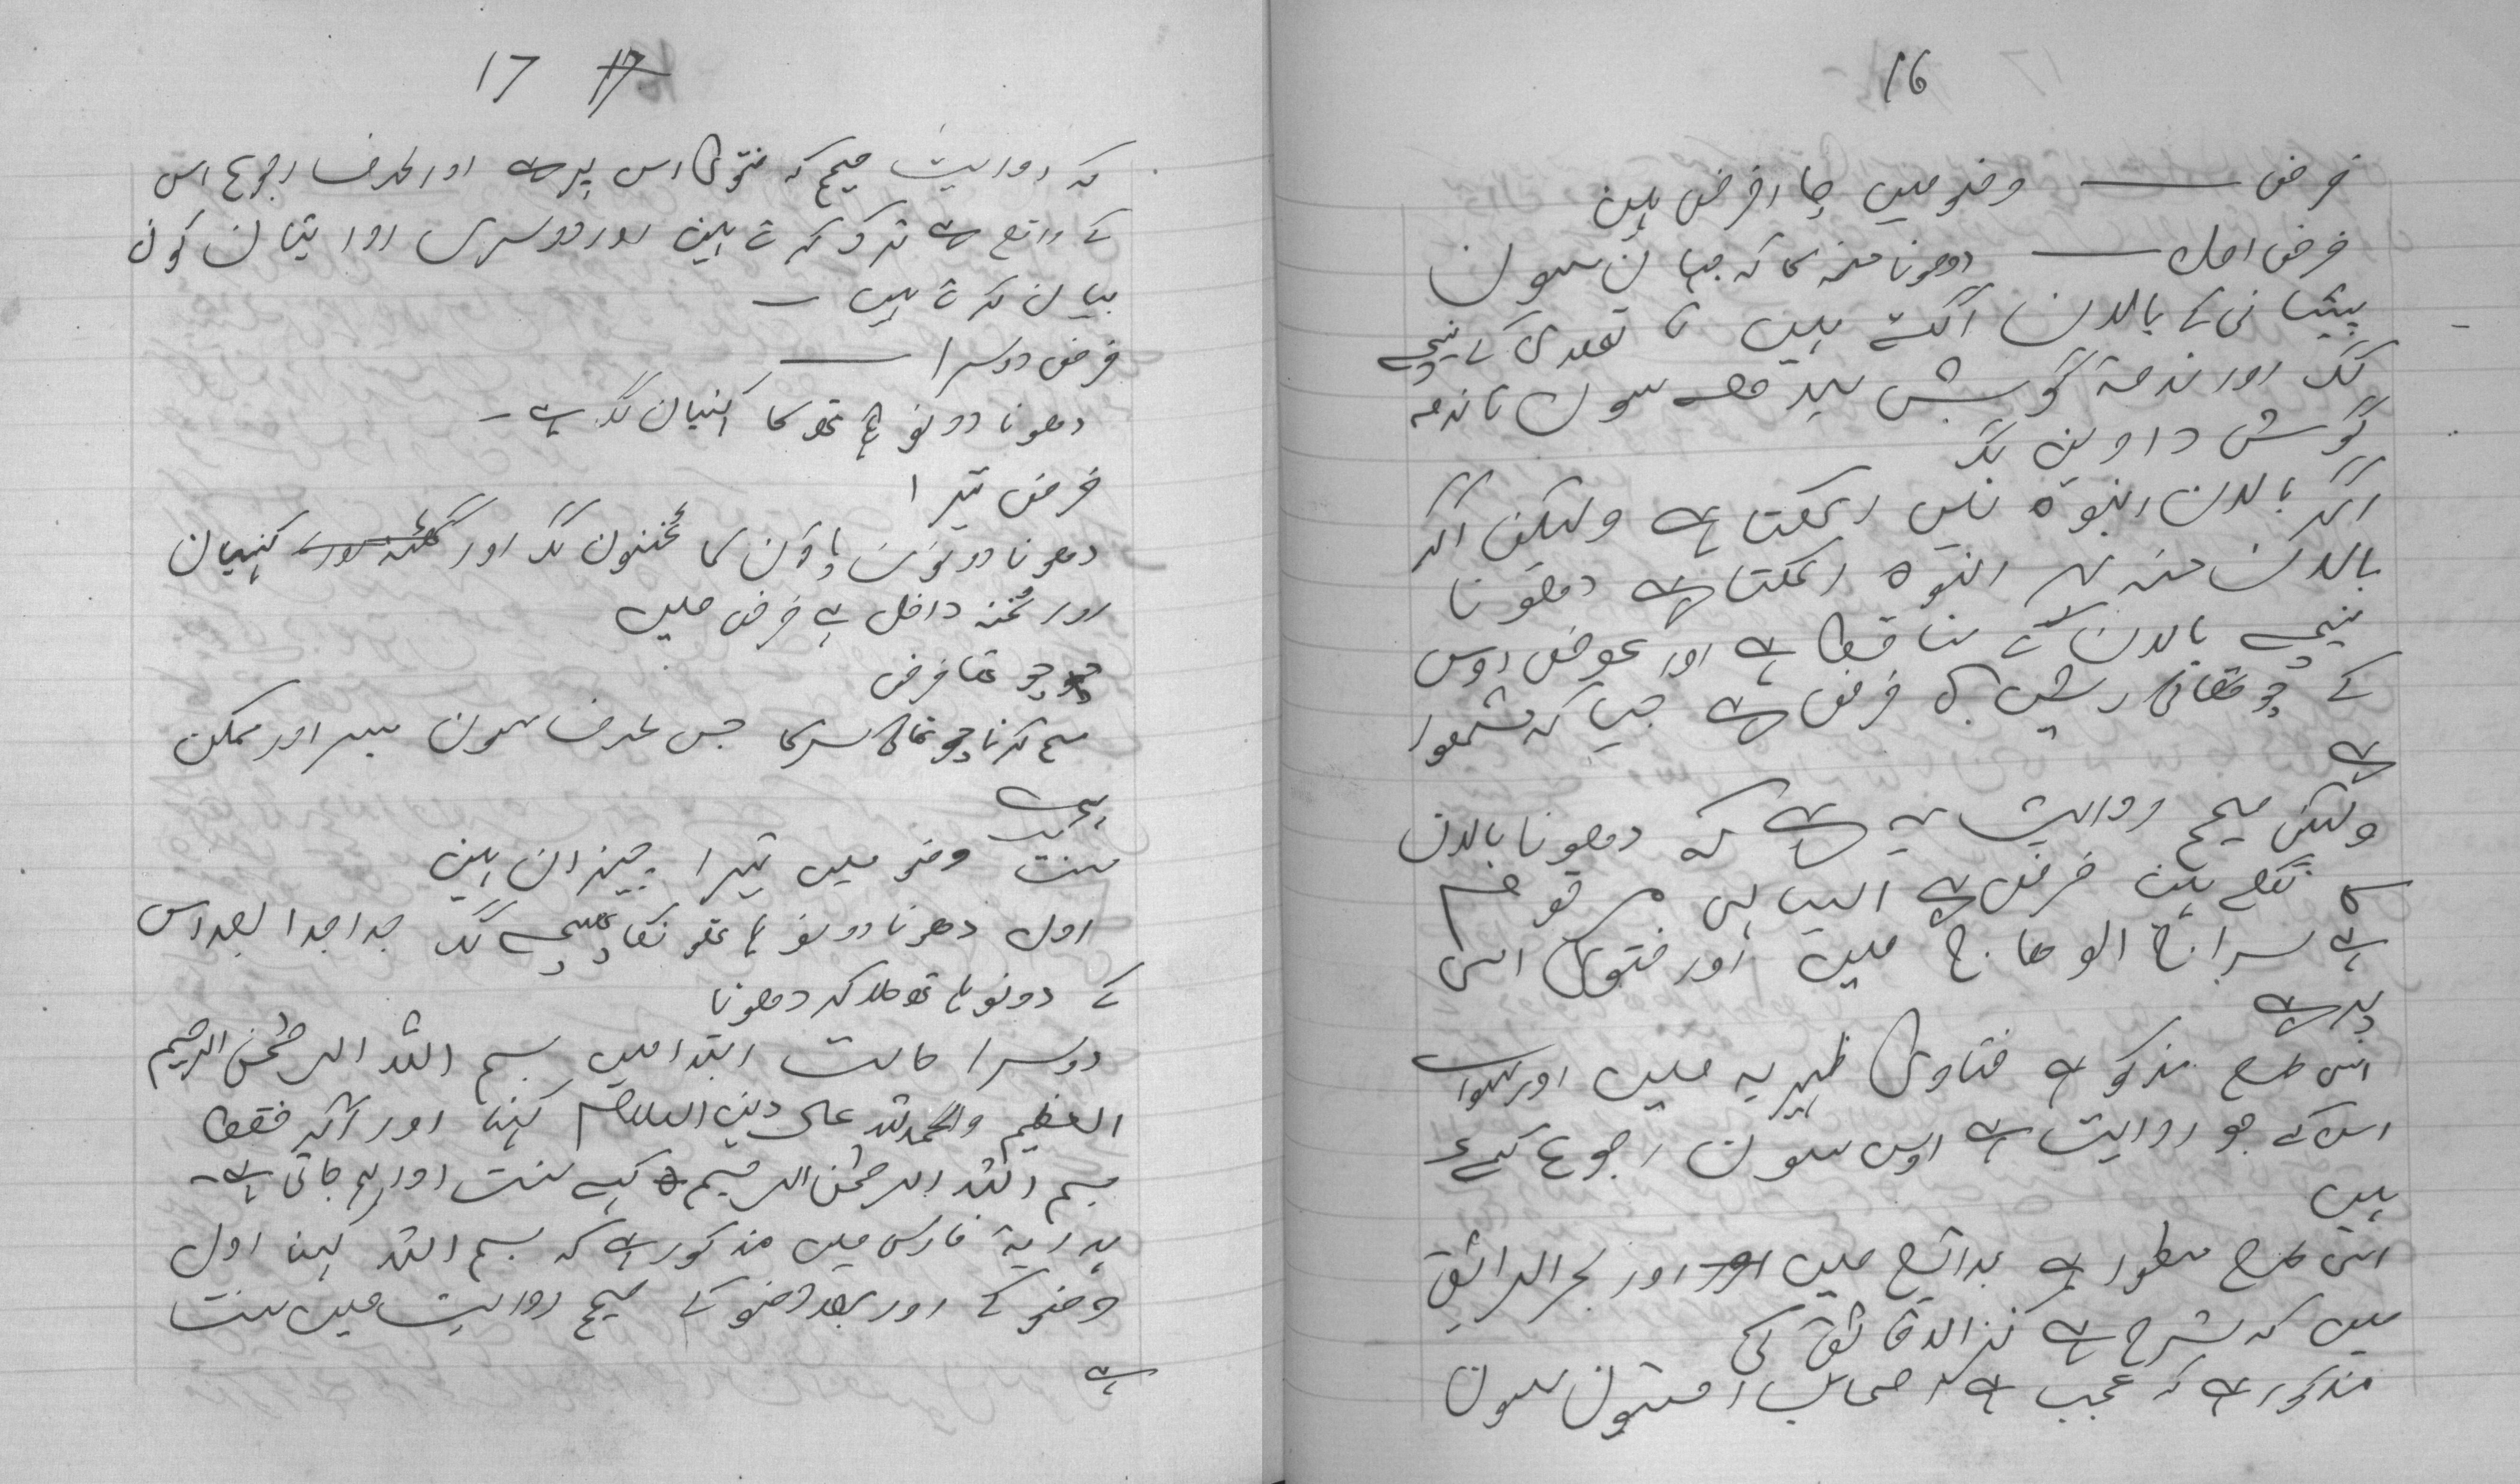 16
فرض — وضو میں چار فرض ہین
فرض اول — دھونا منہ کا کہ جہان سون
پیشانی کے بالان اگتے ہین تا تھڈی کے نیچے
تک اور نرمۂ گوش سیدھے سون تا نرمہ
گوش داوین تک
اگر بالان انبوہ نیں رکھتا ہے ولیکن اگر
بالان منہ پر انبوہ رکھتا ہے دھونا
نیچے بالان کے ساقط ہے اور عوض اوس
کے چوتھائی ریش کی فرض ہے جیسا کہ مشہور
ہے
ولیکن صحیح روایت یہ ہے کہ دھونا بالان
کا نکلے ہین فرض ہے ایسا ہی مرقوم
ہے سراج الوہاج میں اور فتویٰ اسی
پر ہے
اسی طرح مذکور ہے فتاویٰ ظہیریہ میں اور سوائے
اس کے جو روایت ہے اوس سون رجوع کیے
ہیں
اسی طرح مسطور ہے بدائع میں اور بحر الرائق
میں کہ شرح ہے کنز الدقائق کی
مذکور ہے کہ عجب ہے کہ اصحاب متون سون
17 17
کہ روایت صحیح کہ فتویٰ اس پر ہے اور طرف رجوع اس
کے واقع ہے ترک کرتے ہین اور دوسری روایتان کون
بیان کرتے ہیں —
فرض دوسرا —
دھونا دونو ہاتھ کا کہنیان تک ہے –
فرض تیسرا
دھونا دونون پاؤں کا ٹخنون تک اور کہنیان
اور ٹخنہ داخل ہے فرض میں
چوتھا فرض
مسح کرنا چوتھائی سر کا جس طرف سون میسر اور ممکن
ہے
سنت وضو میں تیرا چیزان ہین
اول دھونا دونو ہاتھ کا پہنچے تک جدا جدا بعد اس
کے دونو ہاتھ ملا کر دھونا
دوسرا سنت ابتدا میں بسم اللہ الرحمٰن الرحیم
العظیم والحمد للہ علی دین الاسلام کہنا اور اگر فقط
بسم اللہ الرحمٰن الرحیم کہے سنت ادا ہو جاتی ہے –
ہدایۂ فارسی میں مذکور ہے کہ بسم اللہ کہنا اول
وضو کے اور بعد وضو کے صحیح روایت میں سنت
ہے